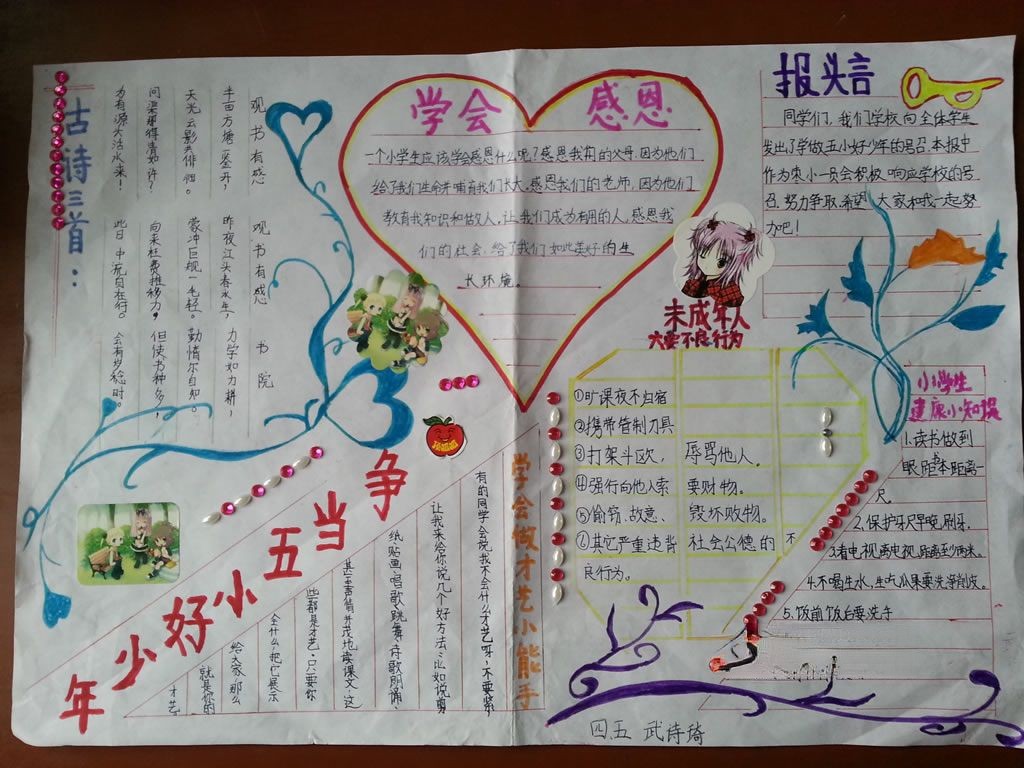 古诗三首：
观书有感
半亩方塘一鉴开，
天光云影共徘徊。
问渠那得清如许？
为有源头活水来！
观书有感
昨夜江头春水生，
蒙冲巨舰一毛轻。
向来枉费推移力，
此日中流自在行。
书院
力学如力耕，
勤惰尔自知。
但使书种多，
会有岁稔时。
学会感恩
一个小学生应该学会感恩什么呢？感恩我们的父母，因为他们
给了我们生命并哺育我们长大，感恩我们的老师，因为他们
教育我知识和做人，让我们成为有用的人，感恩我
们的社会，给了我们如此美好的生
长环境。
报头言
同学们，我们学校向全体学生
发出了学做五小好少年的号召，本报中
作为枣小一员会积极响应学校的号
召，努力争取，希望大家和我一起努
力吧！
未成年人
六要不良行为
①旷课夜不归宿
②携带管制刀具
③打架斗殴，辱骂他人。
④强行向他人索要财物。
⑤偷窃、故意、毁坏败物。
⑥其它严重违背社会公德的不
良行为。
小学生
建康小知识
1.读书做到
眼距本距离一
尺
2.保护牙尺早晚刷牙.
3.看电视离电视距离到两米。
4.不喝生水，生吃瓜果要洗净削皮。
5.饭前饭后要洗手
争当五小好少年
学会做才艺小能手
有的同学会说我不会什么才艺呀，不要紧，
让我来给你说几个好方法：比如说剪
纸贴画、唱歌、跳舞、诗歌朗诵、
甚至声情并茂地读课文，这
些都是才艺。只要你
会什么，把它展示
给大家，那么
就是你的
才艺
四.五 武诗琦